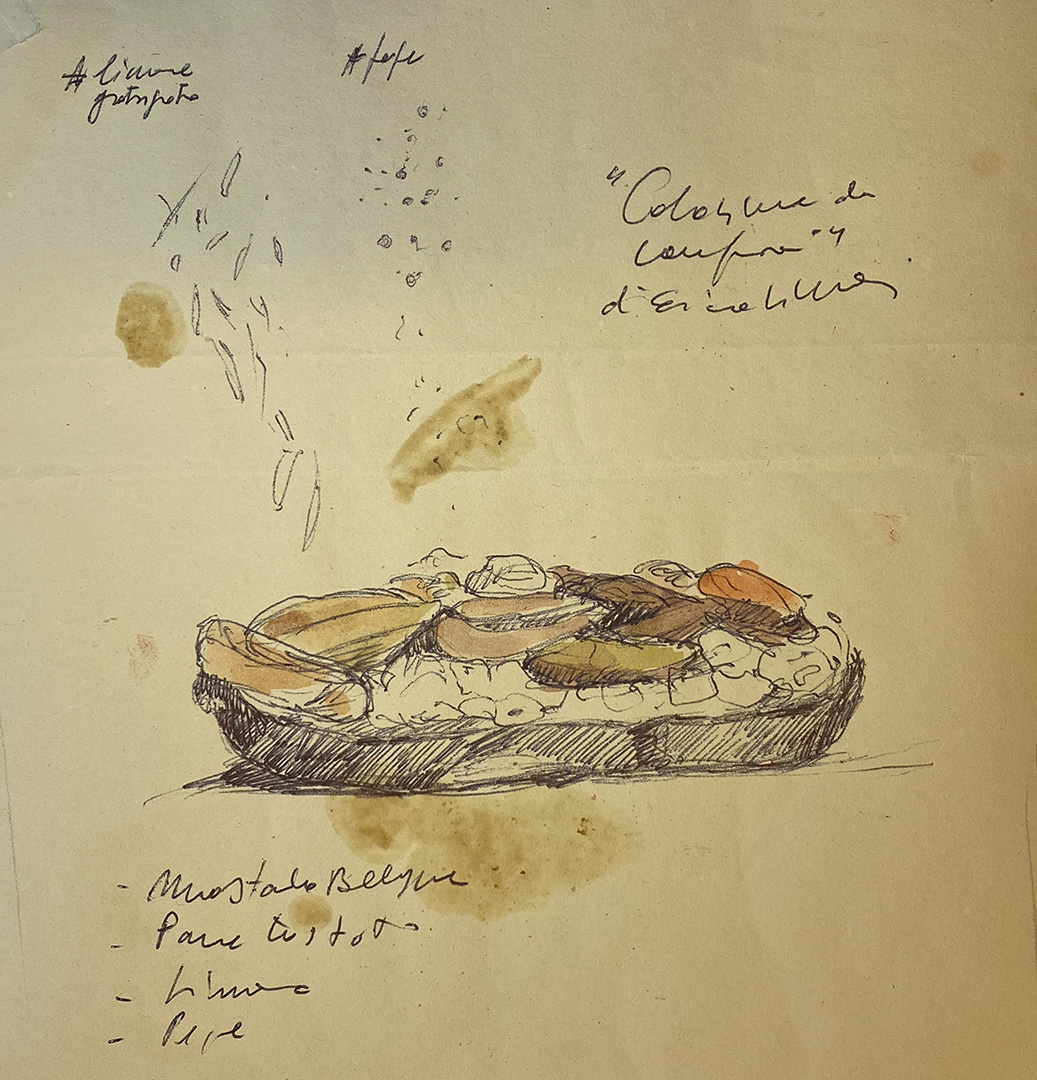 # limone
grattugiato
# pepe
"Colazione da
campione"
d'
- Mostarda Belgur
- Pane tostato
- Limone
- Pepe